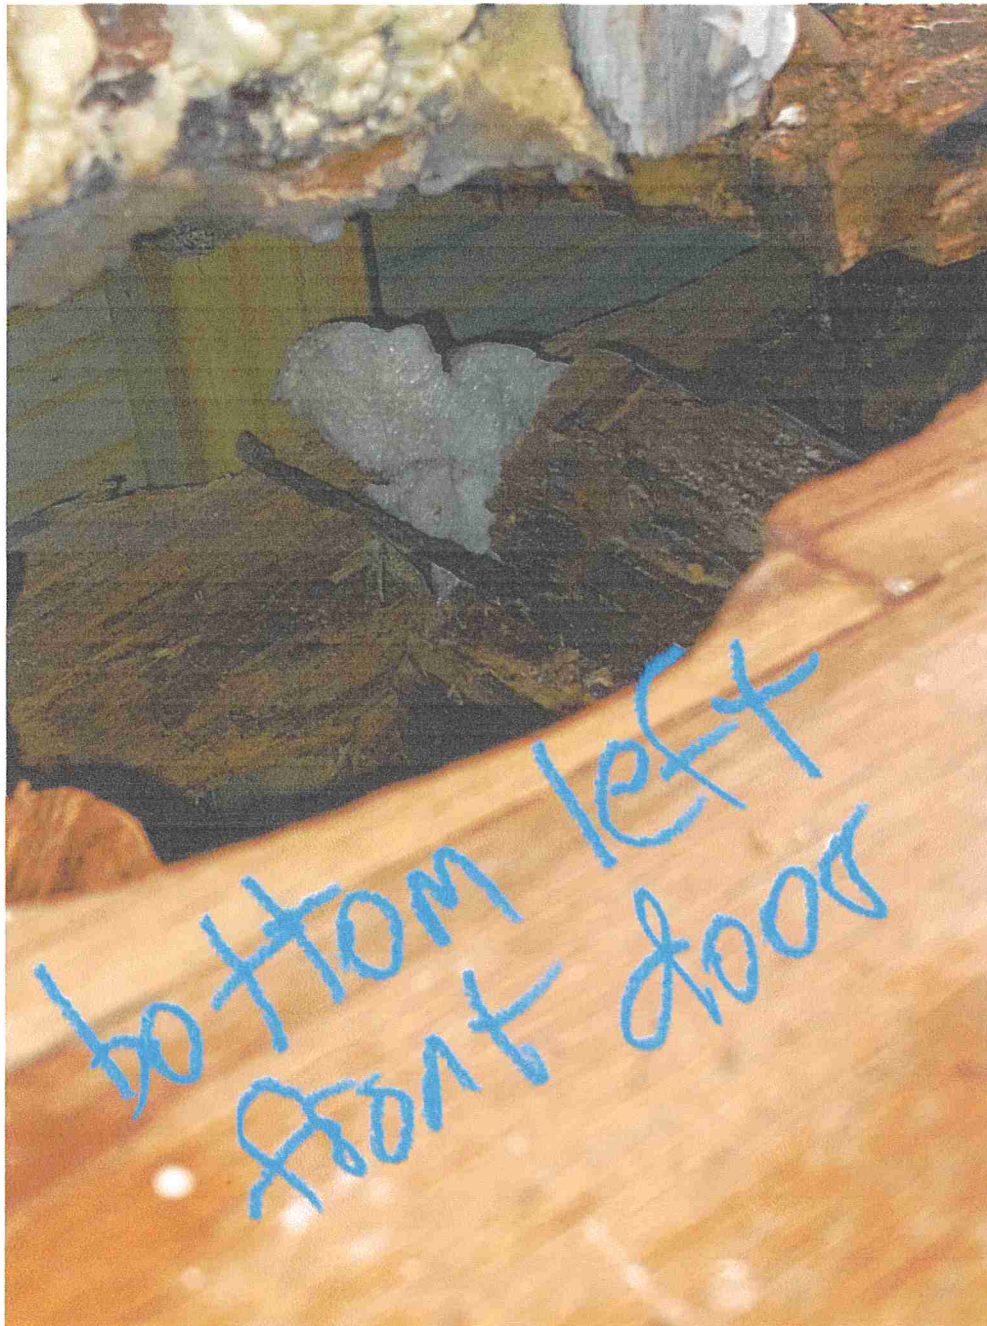 bottom left
front door